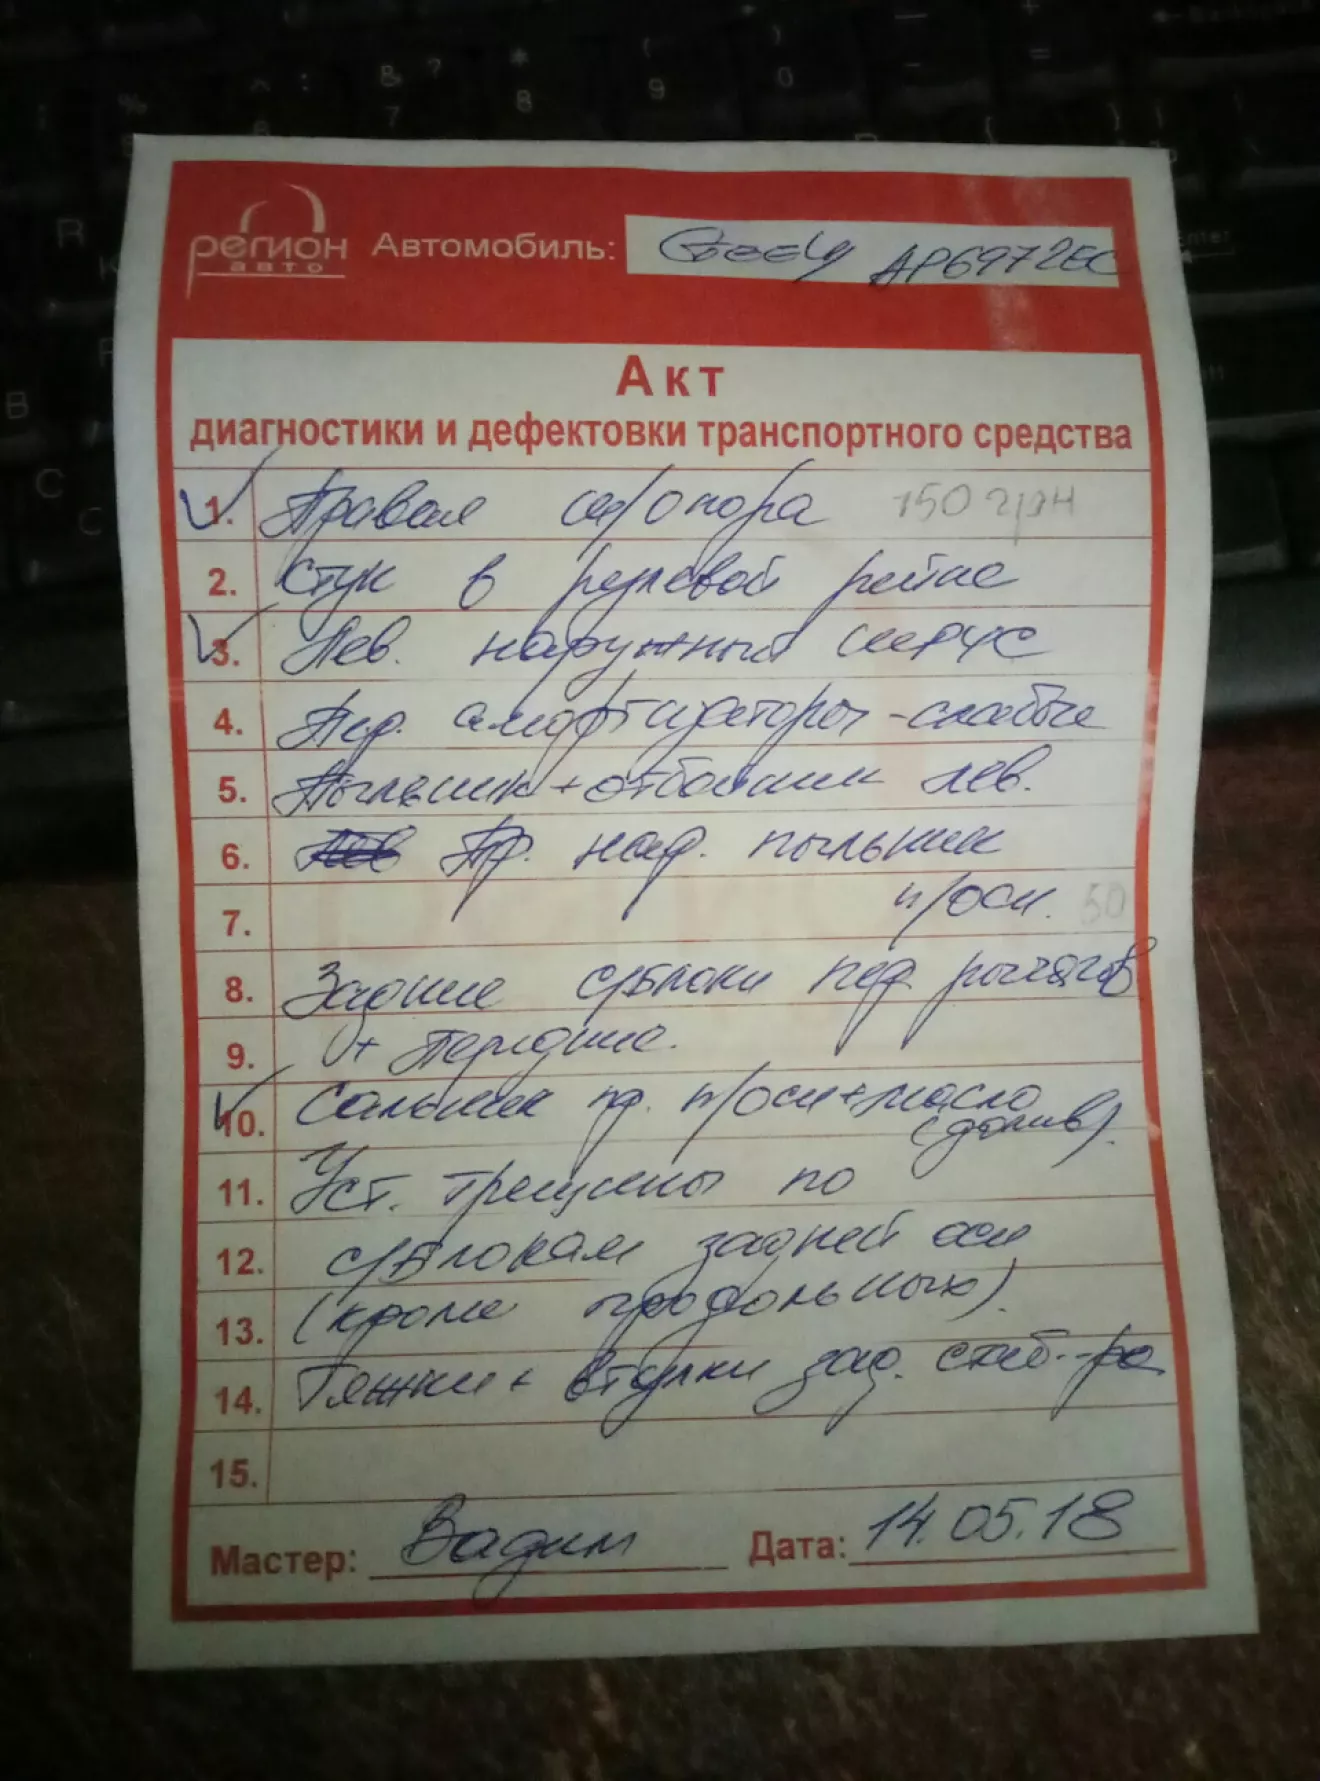 регион
авто
Автомобиль: Geely АР6972ЕС
Акт
диагностики и дефектовки транспортного средства
1. Правая ш/опора 150 грн
2. Стук в рулевой рейке
3. Лев. наружный ШРУС
4. Пер. амортизаторы - слабые
5. Пыльник + отбойник лев.
6. Пр. нар. пыльник
7. п/оси. 50
8. Задние с/блоки пер. рычагов
9. + передние.
10. Сальник пр. п/оси + масло
(долив).
11. Уст. трещины по
12. с/блокам задней оси
13. (кроме продольных).
14. Тяжки + втулки зад. стаб-ра
15.
Мастер: Вадим Дата: 14.05.18